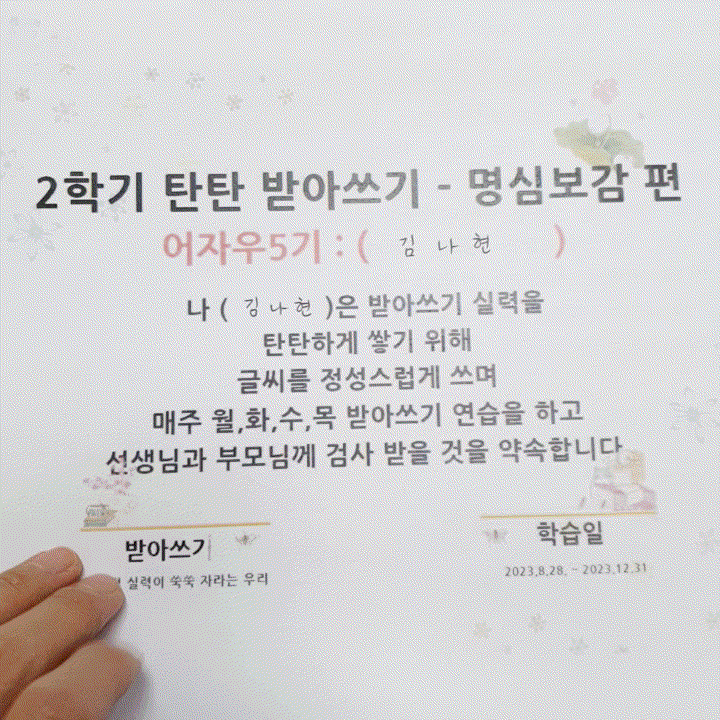 2학기 탄탄 받아쓰기 - 명심보감 편
어자우5기 : ( 김 나 현 )
나 ( 김 나 현 )은 받아쓰기 실력을
탄탄하게 쌓기 위해
글씨를 정성스럽게 쓰며
매주 월,화,수,목 받아쓰기 연습을 하고
선생님과 부모님께 검사 받을 것을 약속합니다
받아쓰기
실력이 쑥쑥 자라는 우리
학습일
2023.8.28. ~ 2023.12.31